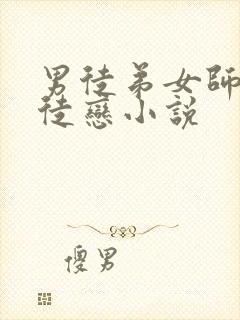 男徒弟女師
徒戀小說
傻男